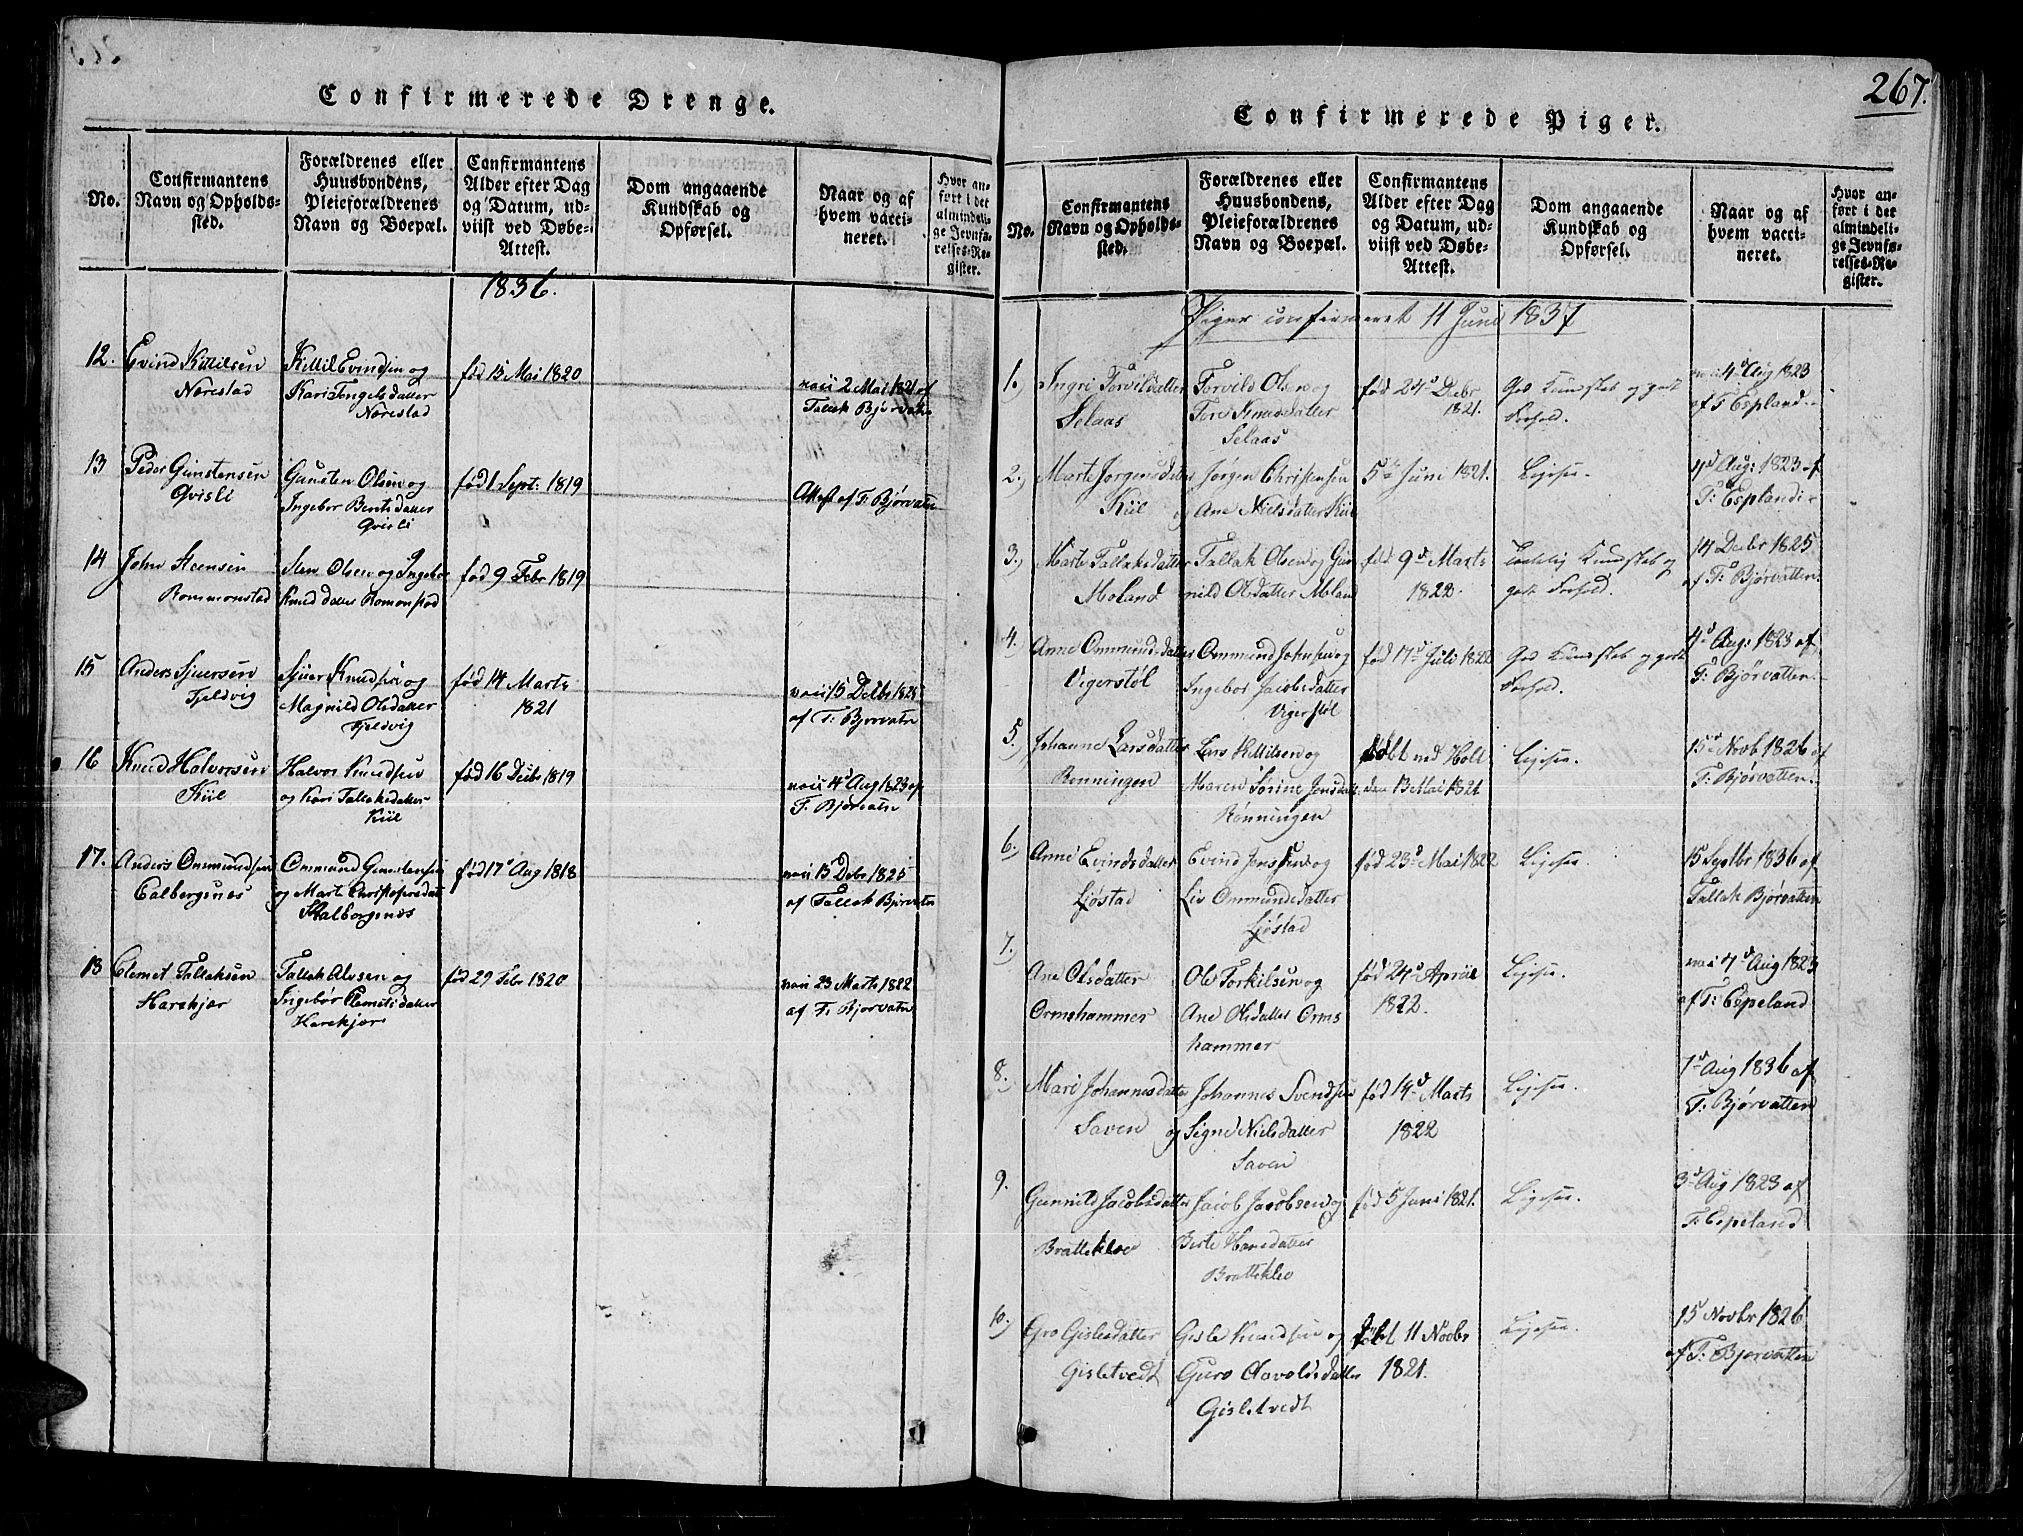 Confirmerede Drenge.
No.
Confirmantens
Navn og Opholds-
sted.
Forældrenes eller
Huusbondens,
Pleieforældrenes
Navn og Boepæl.
Confirmantens
Alder efter Dag
og Datum, ud-
viist ved Døbe-
Attest.
Dom angaaende
Kundskab og
Opførsel.
Naar og af
hvem vacci-
neret.
Hvor an-
ført i det
almindeli-
ge Jevnfø-
relses-Re-
gister.
1836.
12. Evind Kittilsen
Nærestad
Kittil Evindsen og
Kari Tengelsdatter
Nærestad
fød 13 Mai 1820
2 Mai 1821 af
Tallak Bjørvatn
13 Peder Gunstensen
Qvisli
Gunsten Olsen og
Ingebor Berntsdatter
Qvisli
fød 1 Sept: 1819
Attest af T. Bjørvatn
14 John Steensen
Rommonstad
Sten Olsen og Ingebor
Knudsdatter Romonstad
fød 9 Febr 1819
15 Anders Sjuersen
Fjeldvig
Sjuer Knudsen og
Magnild Olsdatter
Fjeldvig
fød 14 Marts
1821
15 Debr 1825
af T: Bjorvatn
16 Knud Halvorsen
Kiil
Halvor Knudsen
og Kari Tallaksdatter
Kiil
fød 16 Debr 1819
4d Aug 1823 af
T: Bjørvatn
17. Anders Ommundsen
Calbergsnes
Ommund Gunstensen
og Marte Christofersdat
Kalborgsnæs
fød 17d Aug 1818
15 Debr 1825
af Tallak Bjørvatn
18 Clemet Tallaksen
Harekjær
Tallak Alvsen og
Ingebør Clemetsdatter
Harekjær
fød 29 Febr 1820
23 Marts 1822
af T. Bjorvatn
267.
Confirmerede Piger.
No.
Confirmantens
Navn og Opholds-
sted.
Forældrenes eller
Huusbondens,
Pleieforældrenes
Navn og Boepæl.
Confirmantens
Alder efter Dag
og Datum, ud-
viist ved Døbe-
Attest.
Dom angaaende
Kundskab og
Opførsel.
Naar og af
hvem vacci-
neret.
Hvor an-
ført i det
almindeli-
ge Jevnfø-
relses-Re-
gister.
Piger confirmeret 11 Juni 1837
1. Ingri Torvildsdatter
Selaas
Torvild Olsen og
Tore Knudsdatter
Selaas
fød 24d Debr
1821.
God Kundskab og godt
Forhold.
4d Aug 1823
af T Espland
2. Marte Jørgensdatter
Kiil
Jørgen Christensen
og Ane Nielsdatter Kiil
5te Juni 1821.
Ligesaa.
4d Aug: 1823 af
T: Espland
3. Marte Tallaksdatter
Moland
Tallak Olsen og Gun
nild Olsdatter Molan
fød 9d Marts
1822.
Temlig Kundskab og
godt Forhold.
14 Debr 1825
af T: Bjørvatten
4. Anne Ommundsdatter
Vigerstøl
Ommund Johnsen og
Ingebor Jacobsdatter
Vigerstøl
fød 17d Juli 1822
God Kundskab og godt
Forhold.
4d Aug: 1823 af
T: Bjørvatten
5. Johanne Larsdatter
Rønningen
Lars Kittilsen og
Maren Sørine Jensdat
Rønningen
født ved Holt
den 13 Mai 1821
Ligesaa.
15d Novb 1826 af
T: Bjørvatten
6. Anne Evindsdatter
Ljøstad
Evind Jenssen og
Liv Ommundsdatter
Ljøstad
fød 23d Mai 1822
Ligesaa.
15 Septbr 1836 af
Tallak Bjørvatten
7. Ane Olsdatter
Ormshammer
Ole Torkilsen og
Ane Olsdatter Orms
hammer
fød 24d Apriil
1822.
Ligesaa.
4d Aug 1823
af T: Espeland
8. Mari Johannesdatter
Saven
Johannes Svendsen
og Signe Nielsdatter
Saven
fød 14d Marts
1822
Ligesaa.
7d Aug 1836 af
T: Bjørvatten
9. Gunnild Jacobsdatter
Bratteklev
Jacob Jacobsen og
Berte Hansdatter
Bratteklev
fød 5 Juni 1821.
Ligesaa.
3d Aug 1823 af
T: Espeland
10. Gro Gislesdatter
Gisletvedt
Gisle Knudsen og
Guro Aavoldsdatter
Gisletvedt
født 11 Novbr
1821.
Ligesaa.
15 Novbr 1826
af T: Bjørvatten